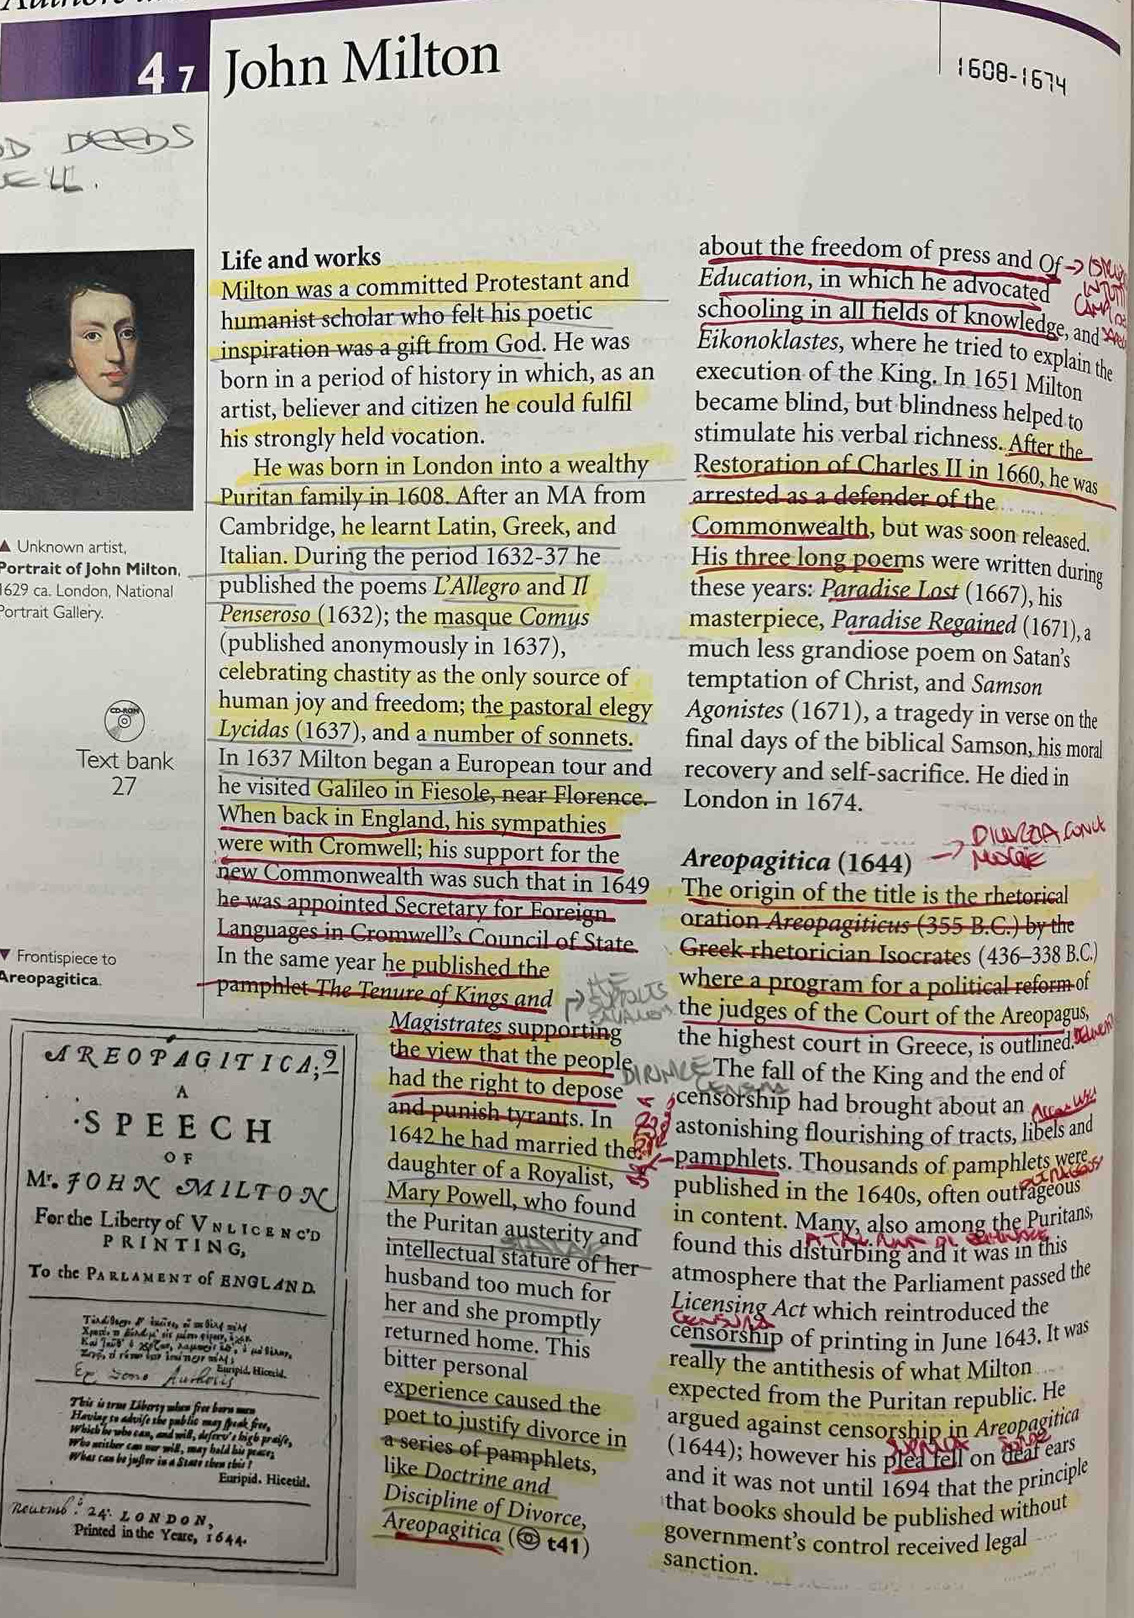 4 7 John Milton
1608-1674
DEEDS
Life and works
Milton was a committed Protestant and
humanist scholar who felt his poetic
inspiration was a gift from God. He was
born in a period of history in which, as an
artist, believer and citizen he could fulfil
his strongly held vocation.
He was born in London into a wealthy
Puritan family in 1608. After an MA from
Cambridge, he learnt Latin, Greek, and
Italian. During the period 1632-37 he
published the poems L'Allegro and Il
Penseroso (1632); the masque Comus
(published anonymously in 1637),
celebrating chastity as the only source of
human joy and freedom; the pastoral elegy
Lycidas (1637), and a number of sonnets.
In 1637 Milton began a European tour and
he visited Galileo in Fiesole, near Florence.
When back in England, his sympathies
were with Cromwell; his support for the
new Commonwealth was such that in 1649
he was appointed Secretary for Foreign
Languages in Cromwell's Council of State.
In the same year he published the
pamphlet The Tenure of Kings and
Magistrates supporting
the view that the people
had the right to depose
and punish tyrants. In
1642 he had married the
daughter of a Royalist,
Mary Powell, who found
the Puritan austerity and
intellectual stature of her
husband too much for
her and she promptly
returned home. This
bitter personal
experience caused the
poet to justify divorce in
a series of pamphlets,
like Doctrine and
Discipline of Divorce,
Areopagitica ( t41)
▲ Unknown artist,
Portrait of John Milton,
1629 ca. London, National
Portrait Gallery.
CD-ROM
Text bank
27
▼ Frontispiece to
Areopagitica.
AREOPAGITICA;
A
SPEECH
OF
Mr. JOHN MILTON
For the Liberty of VNLICENC'D
PRINTING,
To the PARLAMENT of ENGLAND.
Euripid. Hicetid.
This is true Liberty when free born men
Having to advise the public may speak free,
Which he who can, and will, deserv's high praise,
Who neither can nor will, may hold his peace;
What can be juster in a State then this?
Euripid. Hicetid.
LONDON,
Printed in the Yeare, 1644.
about the freedom of press and Of
Education, in which he advocated
schooling in all fields of knowledge, and
Eikonoklastes, where he tried to explain the
execution of the King. In 1651 Milton
became blind, but blindness helped to
stimulate his verbal richness. After the
Restoration of Charles II in 1660, he was
arrested as a defender of the
Commonwealth, but was soon released.
His three long poems were written during
these years: Paradise Lost (1667), his
masterpiece, Paradise Regained (1671), a
much less grandiose poem on Satan's
temptation of Christ, and Samson
Agonistes (1671), a tragedy in verse on the
final days of the biblical Samson, his moral
recovery and self-sacrifice. He died in
London in 1674.
Areopagitica (1644)
The origin of the title is the rhetorical
oration Areopagiticus (355 B.C.) by the
Greek rhetorician Isocrates (436–338 B.C.)
where a program for a political reform of
the judges of the Court of the Areopagus,
the highest court in Greece, is outlined.
The fall of the King and the end of
CENSURA
censorship had brought about an
astonishing flourishing of tracts, libels and
pamphlets. Thousands of pamphlets were
published in the 1640s, often outrageous
in content. Many, also among the Puritans,
found this disturbing and it was in this
atmosphere that the Parliament passed the
Licensing Act which reintroduced the
CENSURA
censorship of printing in June 1643. It was
really the antithesis of what Milton
expected from the Puritan republic. He
argued against censorship in Areopagitica
(1644); however his plea fell on deaf ears
and it was not until 1694 that the principle
that books should be published without
government's control received legal
sanction.